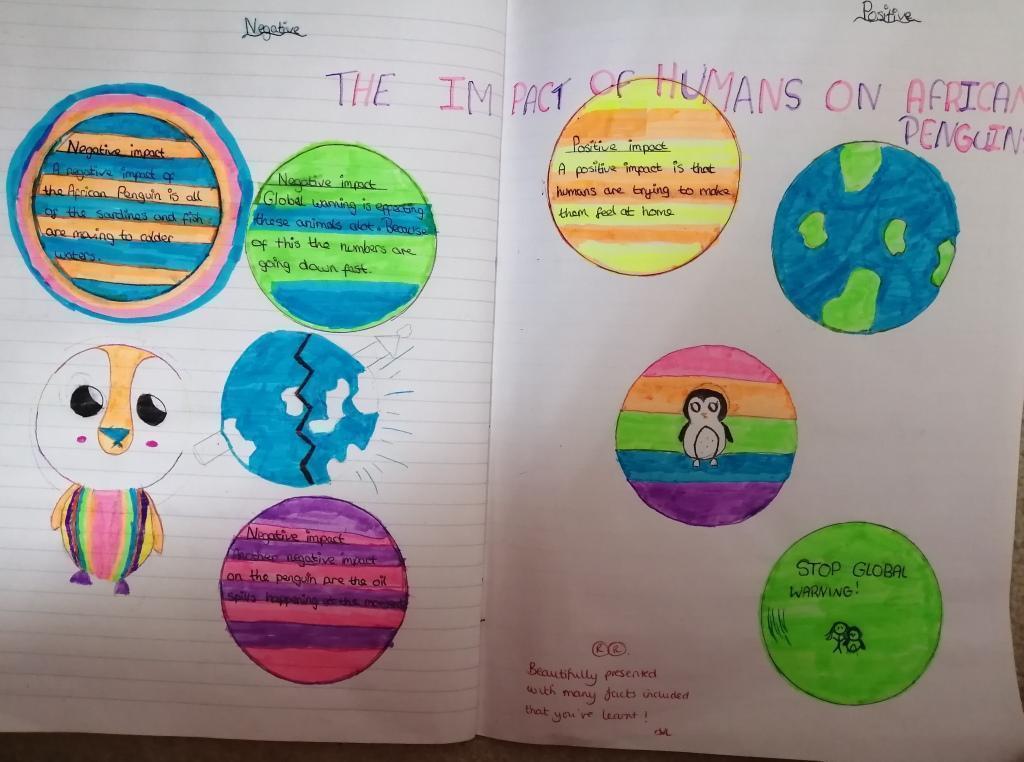 Negative
Positive
THE IMPACT OF HUMANS ON AFRICAN
PENGUINS
Negative impact
A negative impact of
the African Penguin is all
of the sardines and fish
are moving to colder
waters.
Negative impact
Global warning is effecting
these animals alot. Because
of this the numbers are
going down fast.
Negative impact
Another negative impact
on the penguin are the oil
spills happening at the moment
Positive impact
A positive impact is that
humans are trying to make
them feel at home
STOP GLOBAL
WARNING!
RR.
Beautifully presented
with many facts included
that you've learnt!